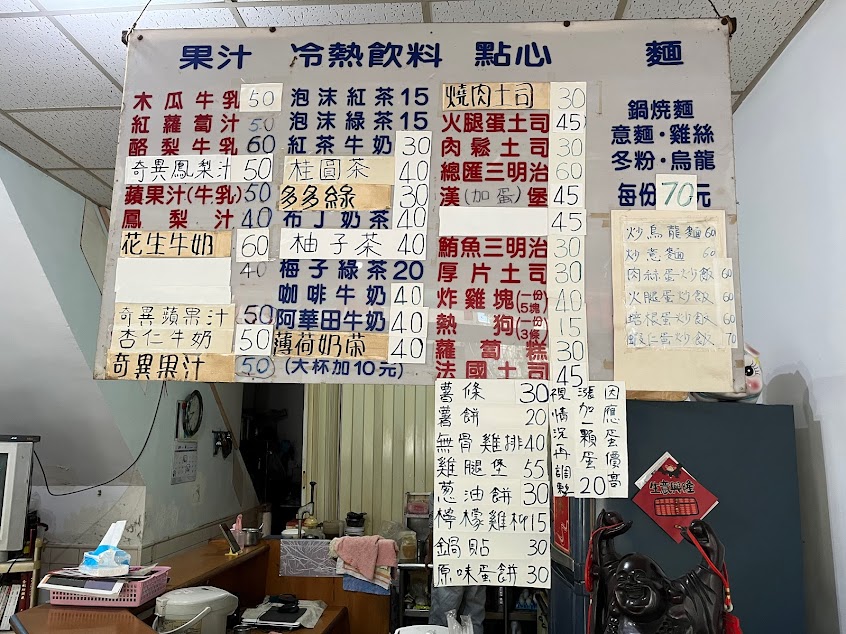 果汁 冷熱飲料 點心 麵
木瓜牛乳 50
紅蘿蔔汁 50
酪梨牛乳 60
奇異鳳梨汁 50
蘋果汁(牛乳) 50
鳳梨汁 40
花生牛奶 60
40
奇異蘋果汁 50
杏仁牛奶 50
奇異果汁 50
泡沫紅茶 15
泡沫綠茶 15
紅茶牛奶 30
桂圓茶 40
多多綠 30
布丁奶茶 40
柚子茶 40
梅子綠茶 20
咖啡牛奶 40
阿華田牛奶 40
薄荷奶茶 40
(大杯加10元)
燒肉土司 30
火腿蛋土司 45
肉鬆土司 30
總匯三明治 60
漢(加蛋)堡 45
45
鮪魚三明治 30
厚片土司 30
炸雞塊(一份5塊) 40
熱狗(一份3條) 15
蘿蔔糕 30
法國土司 45
薯條 30
薯餅 20
無骨雞排 40
雞腿堡 55
葱油餅 30
檸檬雞柳 15
鍋貼 30
原味蛋餅 30
鍋燒麵
意麵・雞絲
冬粉・烏龍
每份70元
炒烏龍麵 60
炒意麵 60
肉絲蛋炒飯 60
火腿蛋炒飯 60
培根蛋炒飯 60
蝦仁蛋炒飯 70
因應蛋價高
漲加一顆蛋20
視情況再調整
生意興隆